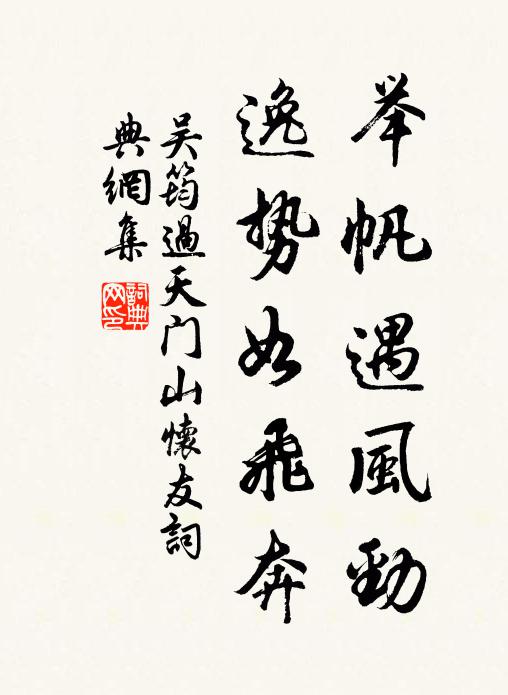 举帆遇風勁
逸势如飛奔
吴筠過天门山懷友詞
典網集
詞典网印